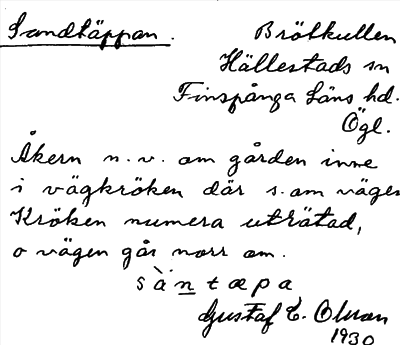 Sandtäppan.
Brötkullen
Hällestads sn
Finspånga Läns hd.
Ögl.
Åkern n.v. om gården inne
i vägkröken där s.om vägen
Kröken numera uträtad,
o vägen går norr om.
sàntapa
Gustaf E. Olsson
1930